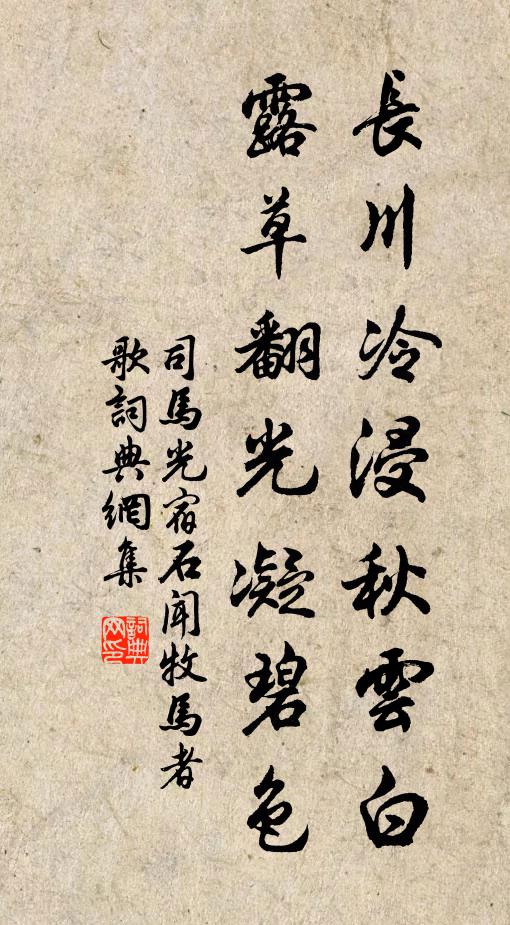 長川冷浸秋雲白
露草翻光凝碧色
司馬光宿石聞牧馬者
歌詞典網集
詞典
网印